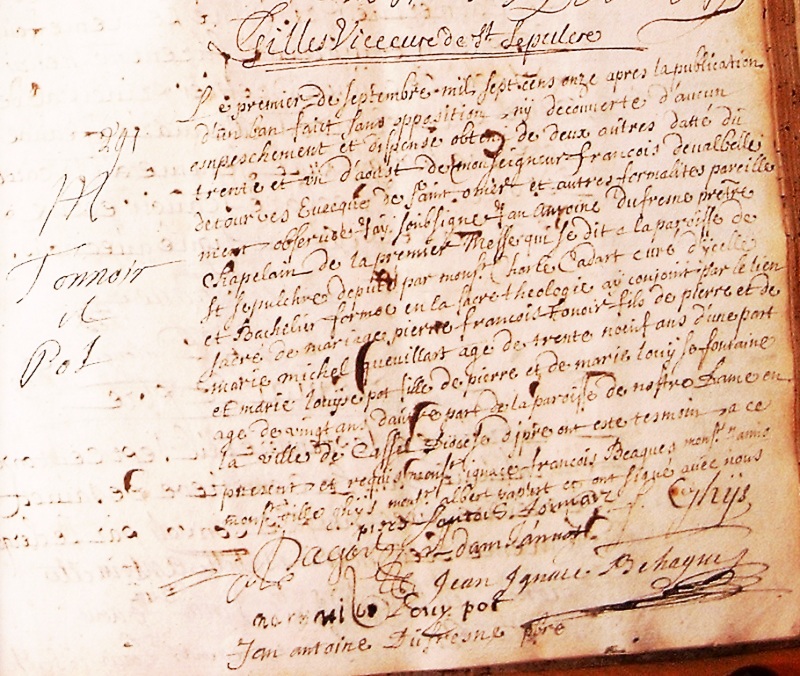 Gilles Vicecure de St Sepulcre
Le premier de septembre mil sept cens onze apres la publication
d'un ban faict sans opposition nij decouverte d'aucun
empeschement et dispense obtenu de deux autres datté du
trente et un d'aoust de monseigneur françois devalbelle
detourves Evecque de saint omer et autres formalites pareille
ment observée J'ay soubsigné Jan Antoine dufresne prêtre
Chapelain de la premier Messe qui se dit a la paroisse de
St sepulchre deputé par monsr Charle Cadart curé d'ycelle
et Bachelir formé en la sacré theologie aÿ conjoint par le lien
sacré de mariage pierre françois tonoir fils de pierre et de
marie michel queuillart agé de trente noeuf ans d'une part
et marie louÿse pot fille de pierre et de marie louÿse fontaine
agé de vingt ans d'autre part de la paroisse de nostre Dame en
la ville de Cassel Diocése d'ipre ont esté tesmoin a ce
present et requis monsr ignace françois Beaques monsr
monsr gille ghÿs monsr albert et ont signé avec nous
291
M
Tonnoir
et
Pot
f. Ghÿs
Jean Ignace Behague
Louy pot
Jan antoine Dufresne pbre